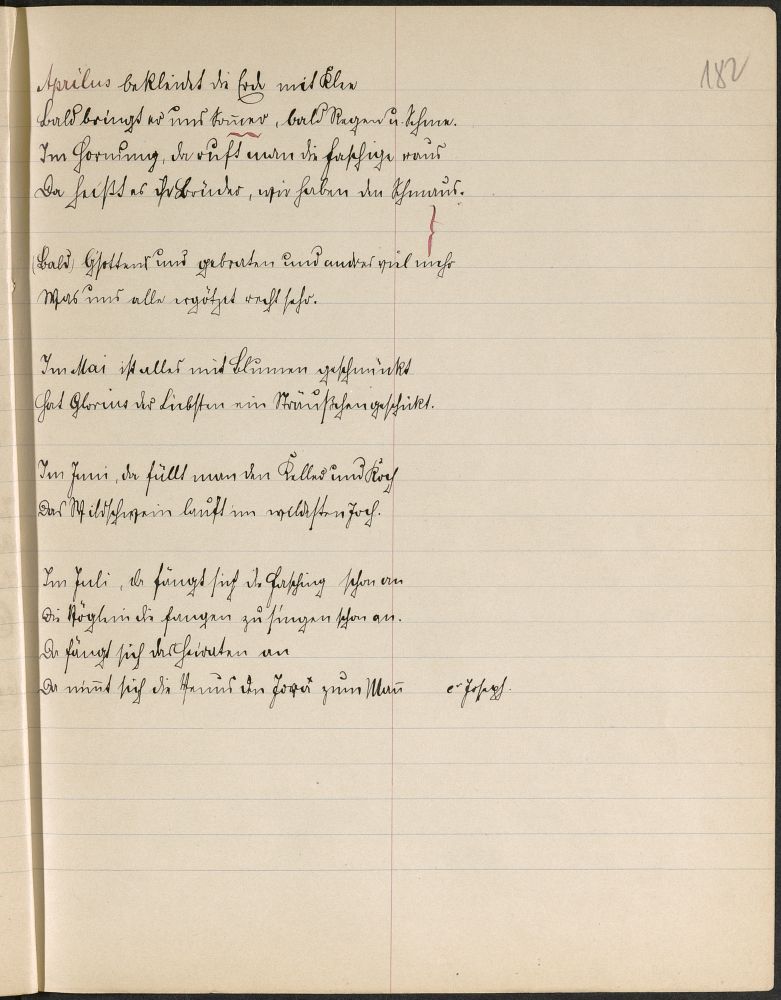 182
Aprilus bekleidet die Erde mit Klee
Bald bringt er uns Som̅er, bald Regen u. Schnee.
Im Hornung, da ruft man die Faschige raus
Da heißt es ihr Brüder, wir haben den Schmaus.
(Bald) Gsottens und gebraten und andres viel mehr
Was uns alle ergötzet recht sehr.
Im Mai ist alles mit Blumen geschmückt
Hat Glorius der Liebsten ein Sträußchen geschükt.
Im Juni, da füllt man den Keller und Koch
Das Wildschwein lauft im wildesten Joch.
Im Juli, da fängt sich die Fasching schon an
Die Vöglein die fangen zu singen schon an.
Da fängt sich das Heiraten an
Da nim̅t sich die Venus den Jova zum Man̅ Joseph.